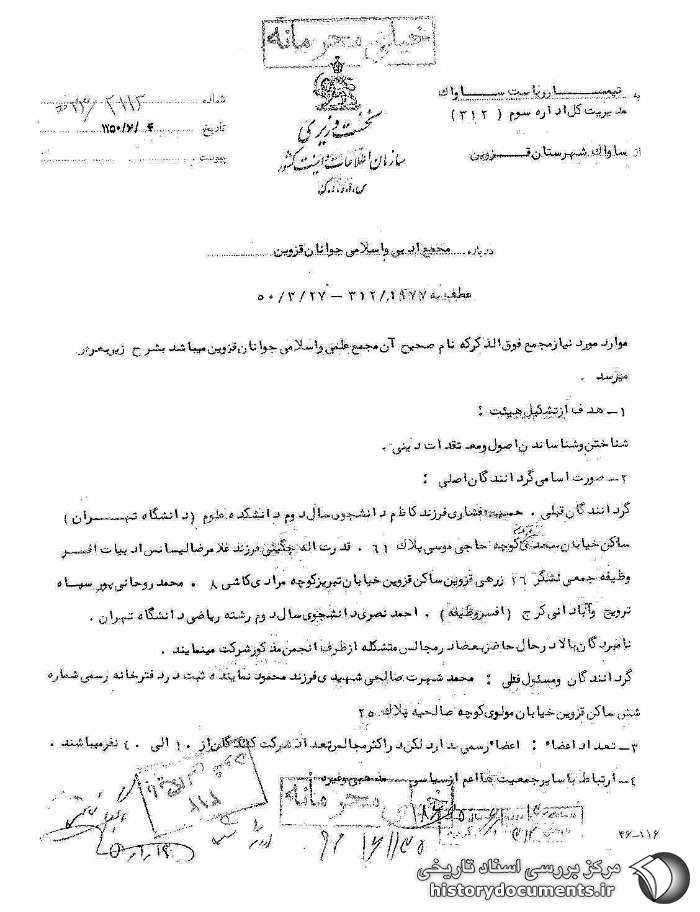 خیلی محرمانه
به تیمسار ریاست ساواک
مدیریت کل اداره سوم ( ۳۱۲ )
از ساواک شهرستان قزوین
نخست وزیری
سازمان اطلاعات و امنیت کشور
س.ا.و.ا.ک
شماره ۲۱۱۲/
تاریخ ۱۳۵۰/۶/۴
پیوست
درباره مجمع ادبی واسلامی جوانان قزوین
عطف به ۳۱۲/۱۹۷۷ – ۵۰/۳/۲۷
موارد مورد نیاز مجمع فوق الذکر که نام صحیح آن مجمع علمی واسلامی جوانان قزوین میباشد بشرح زیر بعرض
میرسد .
۱ــ هدف از تشکیل هیئت :
شناختن و شناساندن اصول و معتقدات دینی .
۲ــ صورت اسامی گردانندگان اصلی :
گردانندگان قبلی . افشاری فرزند کاظم دانشجوی سال دوم دانشکده علوم (دانشگاه تهران)
ساکن خیابان سعدی کوچه حاجی موسی پلاک ۶۱ . قدرت اله چگینی فرزند غلامرضا لیسانس ادبیات افسر
وظیفه جمعی لشگر ۱۶ زرهی قزوین ساکن قزوین خیابان تبریز کوچه مرادی کاشی ۸ . محمد روحانی پور سپاه
ترویج وآبادانی کرج (افسر وظیفه) . احمد نصری دانشجوی سال دوم رشته ریاضی دانشگاه تهران .
نامبردگان بالا در حال حاضر بعضا در مجالس متشکله از طرف انجمن مذکور شرکت مینمایند .
گردانندگان ومسئول فعلی : محمد شهرت صالحی شهیدی فرزند محمود نماینده ثبت در دفترخانه رسمی شماره
شش ساکن قزوین خیابان مولوی کوچه صالحیه پلاک ۲۵
۳ــ تعداد اعضاء : اعضاء رسمی ندارد لکن در اکثر مجالس تعداد شرکت کنندگان از ۱۰ الی ۴۰ نفر میباشند .
۴ــ ارتباط با سایر جمعیت ها اعم از سیاسی مذهبی وغیره
خیلی محرمانه
۳۶-۱۱۶
مرکز بررسی اسناد تاریخی
historydocuments.ir